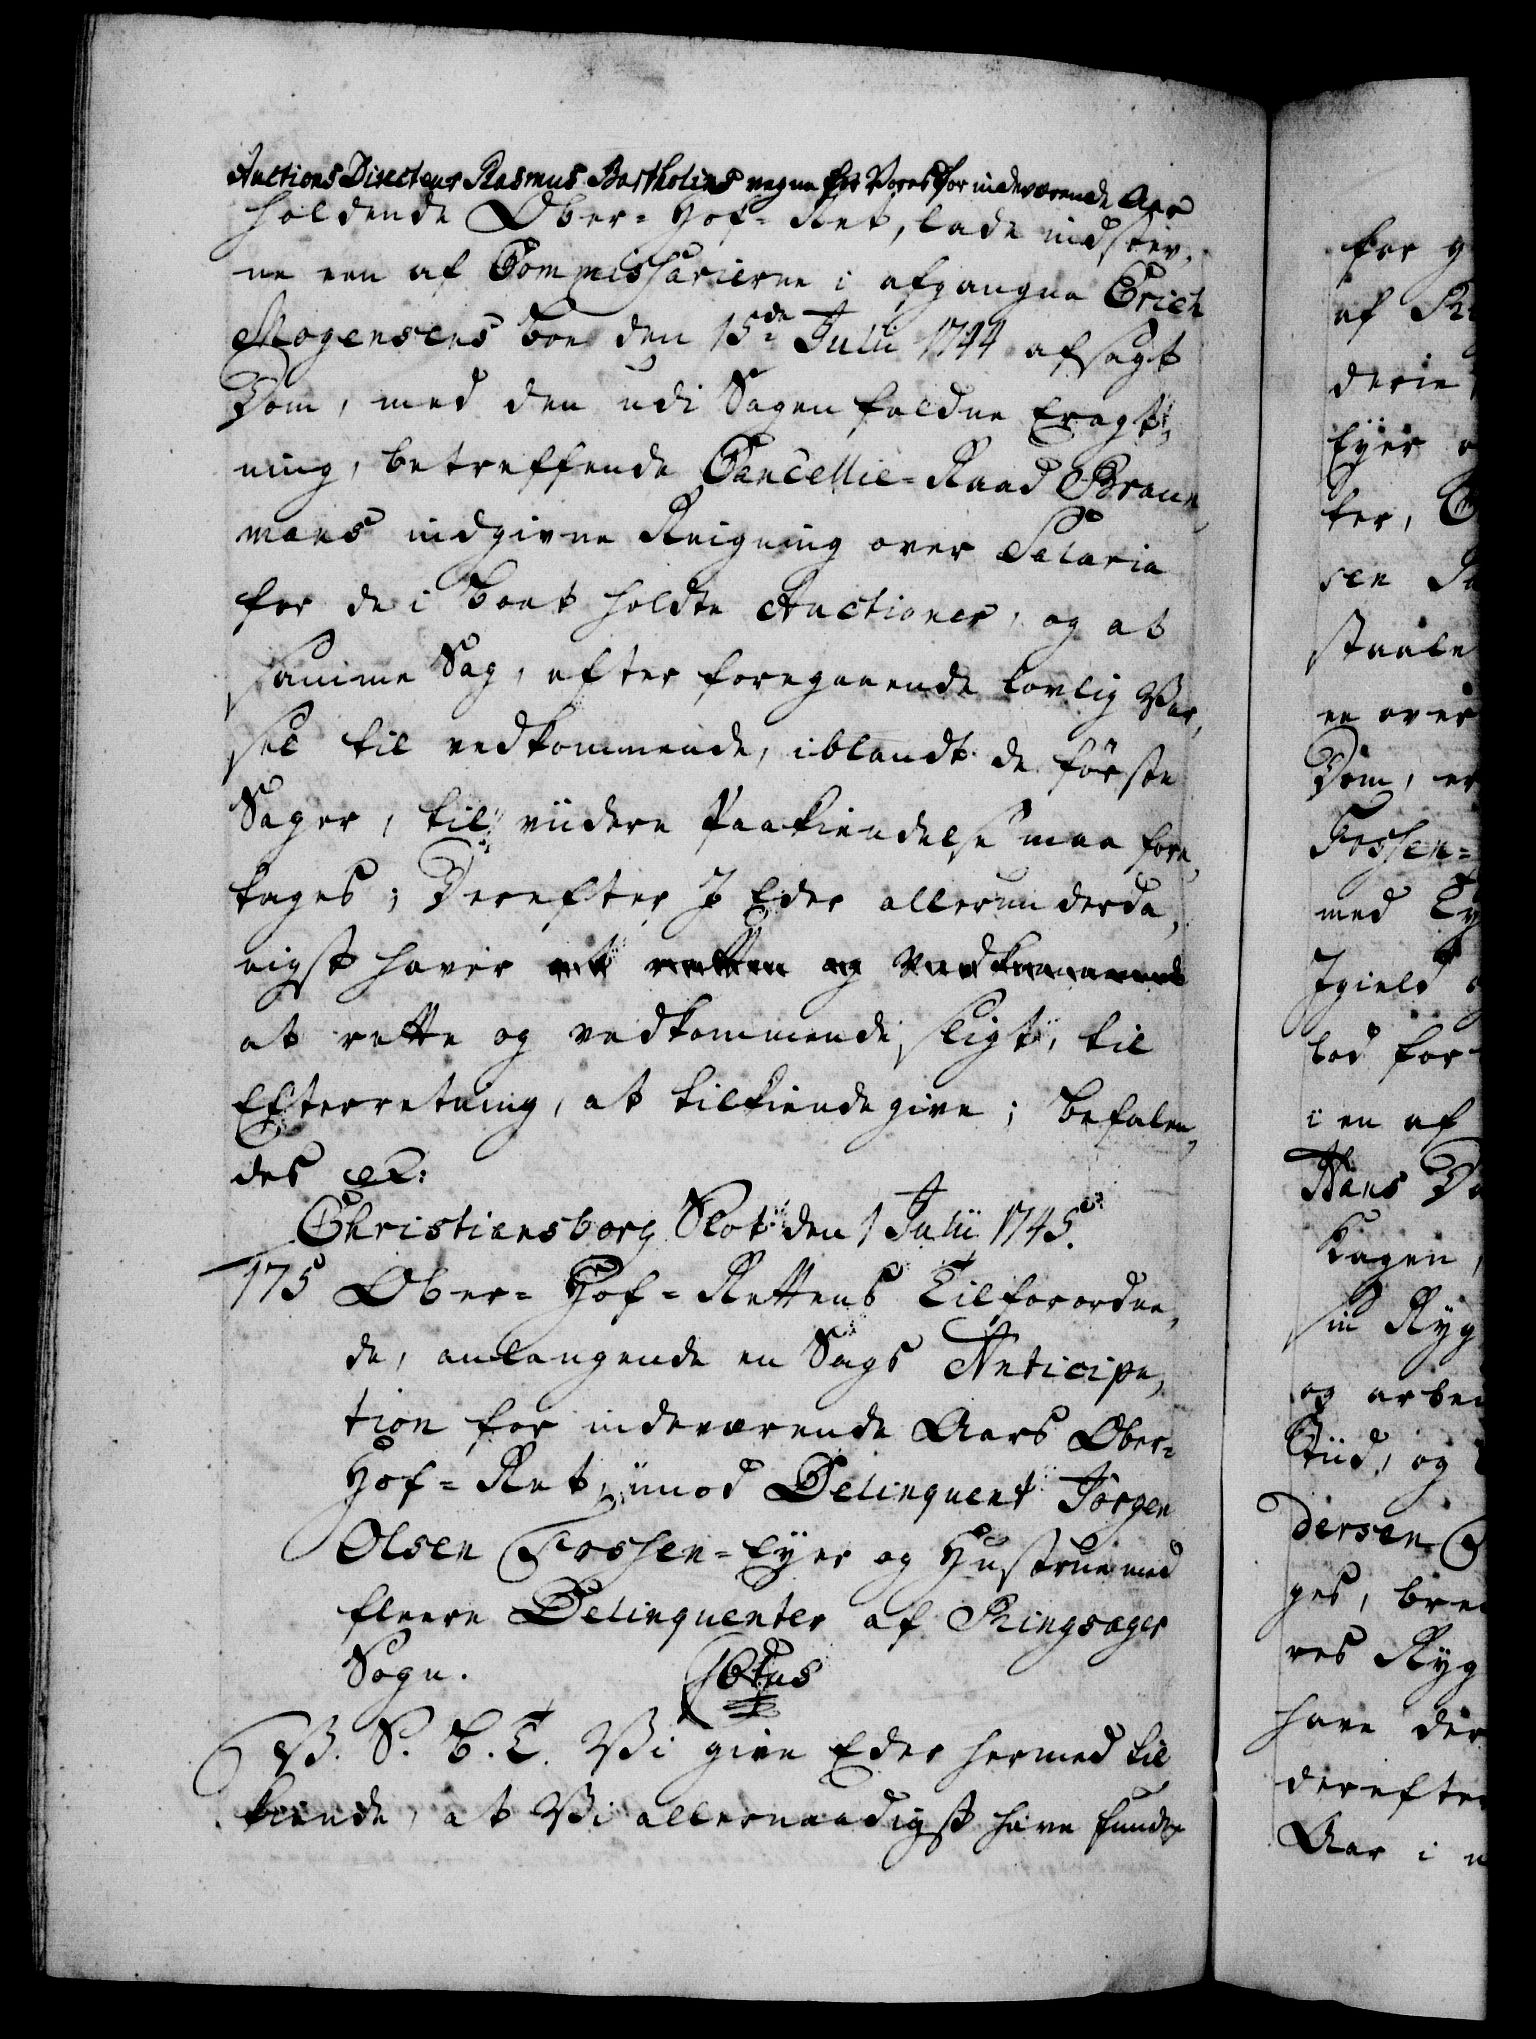 Auctions Directeur Rasmus Bartholins vegne for Vores for indeværende Aar
holdende Ober-Hof-Ret, lade indstev,
ne een af Commissarierne i afgangne Erich
Mogensens Boe den 15de Julii 1744 afsagt
Dom, med den udi Sagen faldne Eragt,
ning, betreffende Cancellie-Raad Braun,
mans indgivne Reigning over Salaria
for de i Boet holdte Auctioner, og at
samme Sag, efter foregaaende lovlig Var,
sel til vedkommende, iblandt de förste
Sager, til viidere Paakiendelse maa fore,
tages; Derefter I Eder allerunderda,
nigst haver
at rette og vedkommende sligt, til
Efterretning, at tilkiendegive; Befalen,
des etc:
Christiansborg Slot den 1 Julii 1745.
175 Ober-Hof-Rettens Tilforordne,
de, anlangende en Sags Anticipa,
tion for indeværende Aars Ober-
Hof-Ret, imod Delinquent Jörgen
Olsen Fossen-Eyer og Hustrue med
fleere Delinquenter af Ringsager
Sogn.
V. S. B. T. Vi give Eder hermed til
kiende, at Vi allernaadigst have funden
for g
af Ri
derie
Eyer o
ter,
sen
staale
en over
Dom, er
Fossen-
med
Igield
lod for-
i en af
Hans
Hagen,
sin Ryg
og arbei
Tiid, og
dersen
ges,
res Ryg
have der
derefter
Aar i